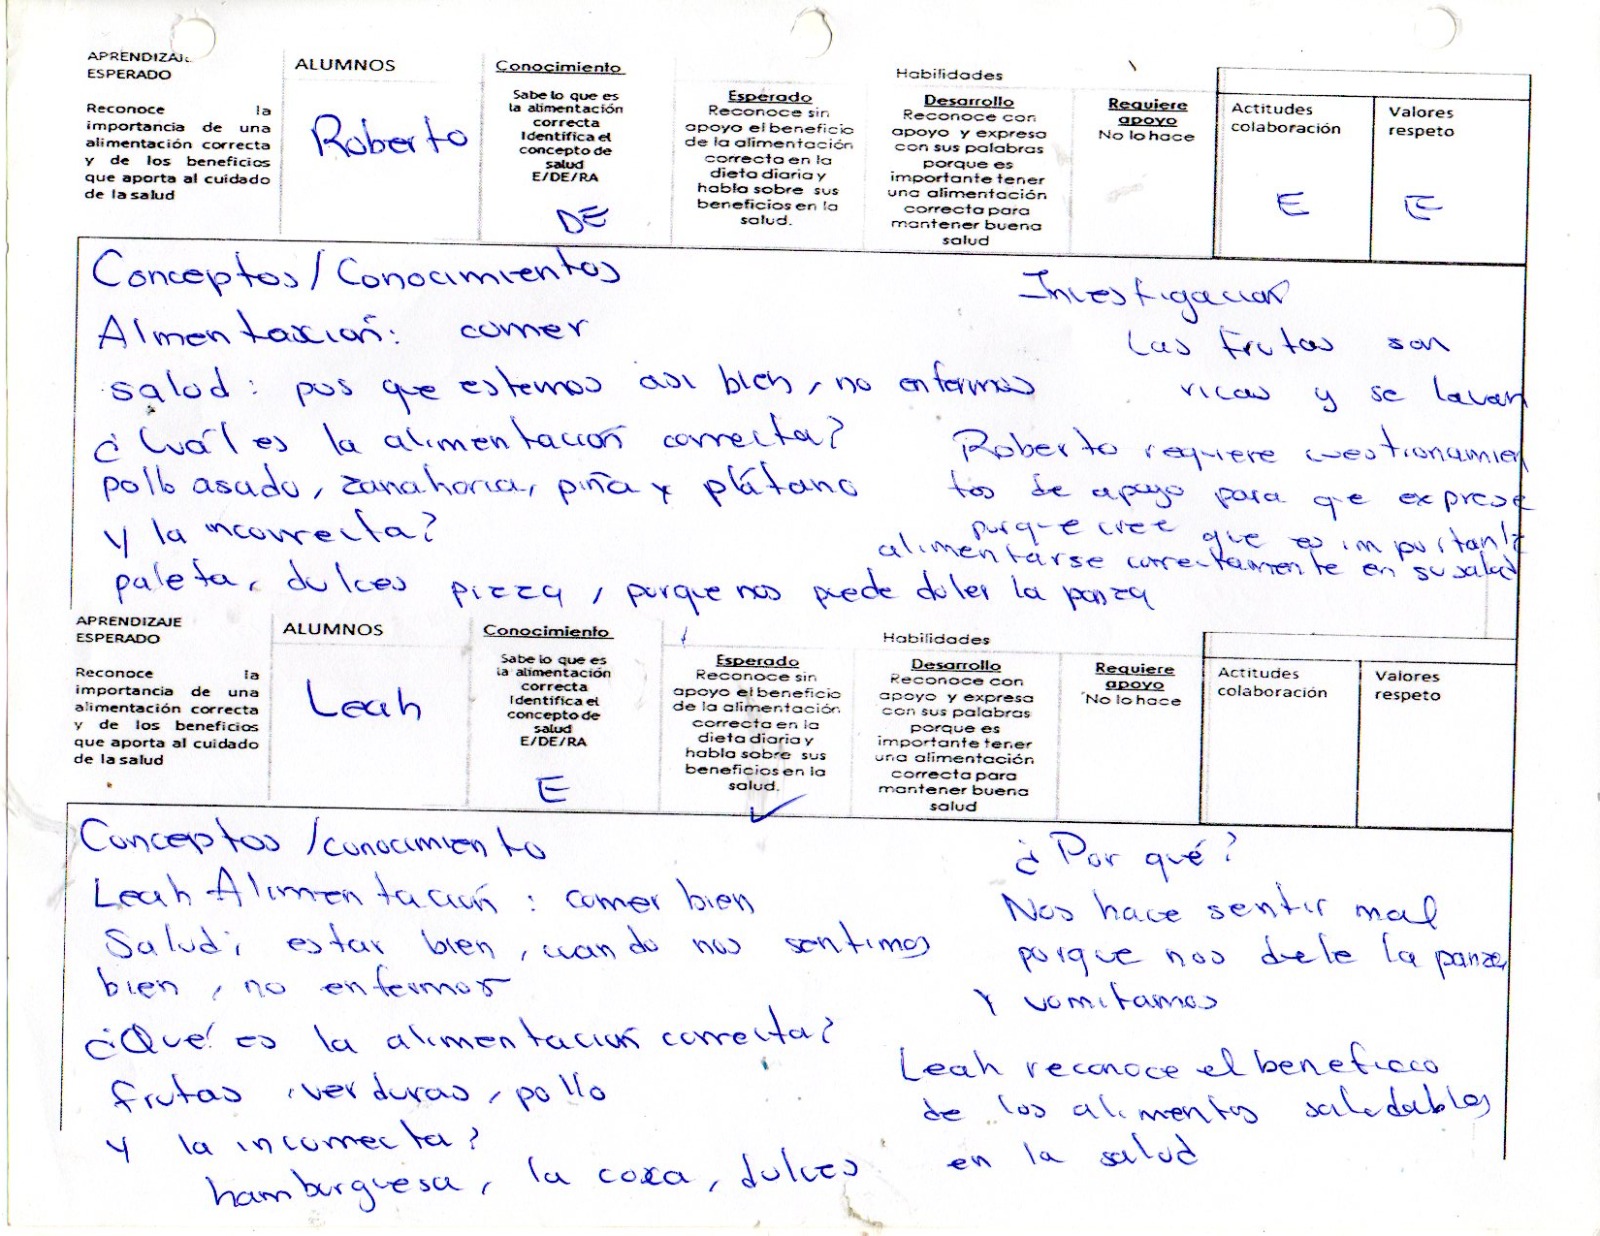 APRENDIZAJE
ESPERADO
Reconoce la
importancia de una
alimentación correcta
y de los beneficios
que aporta al cuidado
de la salud
ALUMNOS
Roberto
Conocimiento
Sabe lo que es
la alimentación
correcta
Identifica el
concepto de
salud
E/DE/RA
DE
Habilidades
Esperado
Reconoce sin
apoyo el beneficio
de la alimentación
correcta en la
dieta diaria y
habla sobre sus
beneficios en la
salud.
Desarrollo
Reconoce con
apoyo y expresa
con sus palabras
porque es
importante tener
una alimentación
correcta para
mantener buena
salud
Requiere
apoyo
No lo hace
Actitudes
colaboración
E
Valores
respeto
E
Conceptos/Conocimientos
Alimentación: comer
salud: pos que estemos asi bien, no enfermos
¿Cuál es la alimentación correcta?
pollo asado, zanahoria, piña y plátano
y la incorrecta?
paleta, dulces pizza, porque nos puede doler la panza
Investigación
Las frutas son
ricas y se lavan
Roberto requiere cuestionamien
tos de apoyo para que exprese
porque cree que es importante
alimentarse correctamente en su salud
APRENDIZAJE
ESPERADO
Reconoce la
importancia de una
alimentación correcta
y de los beneficios
que aporta al cuidado
de la salud
ALUMNOS
Leah
Conocimiento
Sabe lo que es
la alimentación
correcta
Identifica el
concepto de
salud
E/DE/RA
E
Habilidades
Esperado
Reconoce sin
apoyo el beneficio
de la alimentación
correcta en la
dieta diaria y
habla sobre sus
beneficios en la
salud.
Desarrollo
Reconoce con
apoyo y expresa
con sus palabras
porque es
importante tener
una alimentación
correcta para
mantener buena
salud
Requiere
apoyo
No lo hace
Actitudes
colaboración
Valores
respeto
Conceptos/conocimiento
Leah Alimentación: comer bien
Salud; estar bien, cuando nos sentimos
bien, no enfermos
¿Qué es la alimentación correcta?
frutas, verduras, pollo
y la incorrecta?
hamburguesa, la coca, dulces
¿Por qué?
Nos hace sentir mal
porque nos duele la panza
y vomitamos
Leah reconoce el beneficio
de los alimentos saludables
en la salud